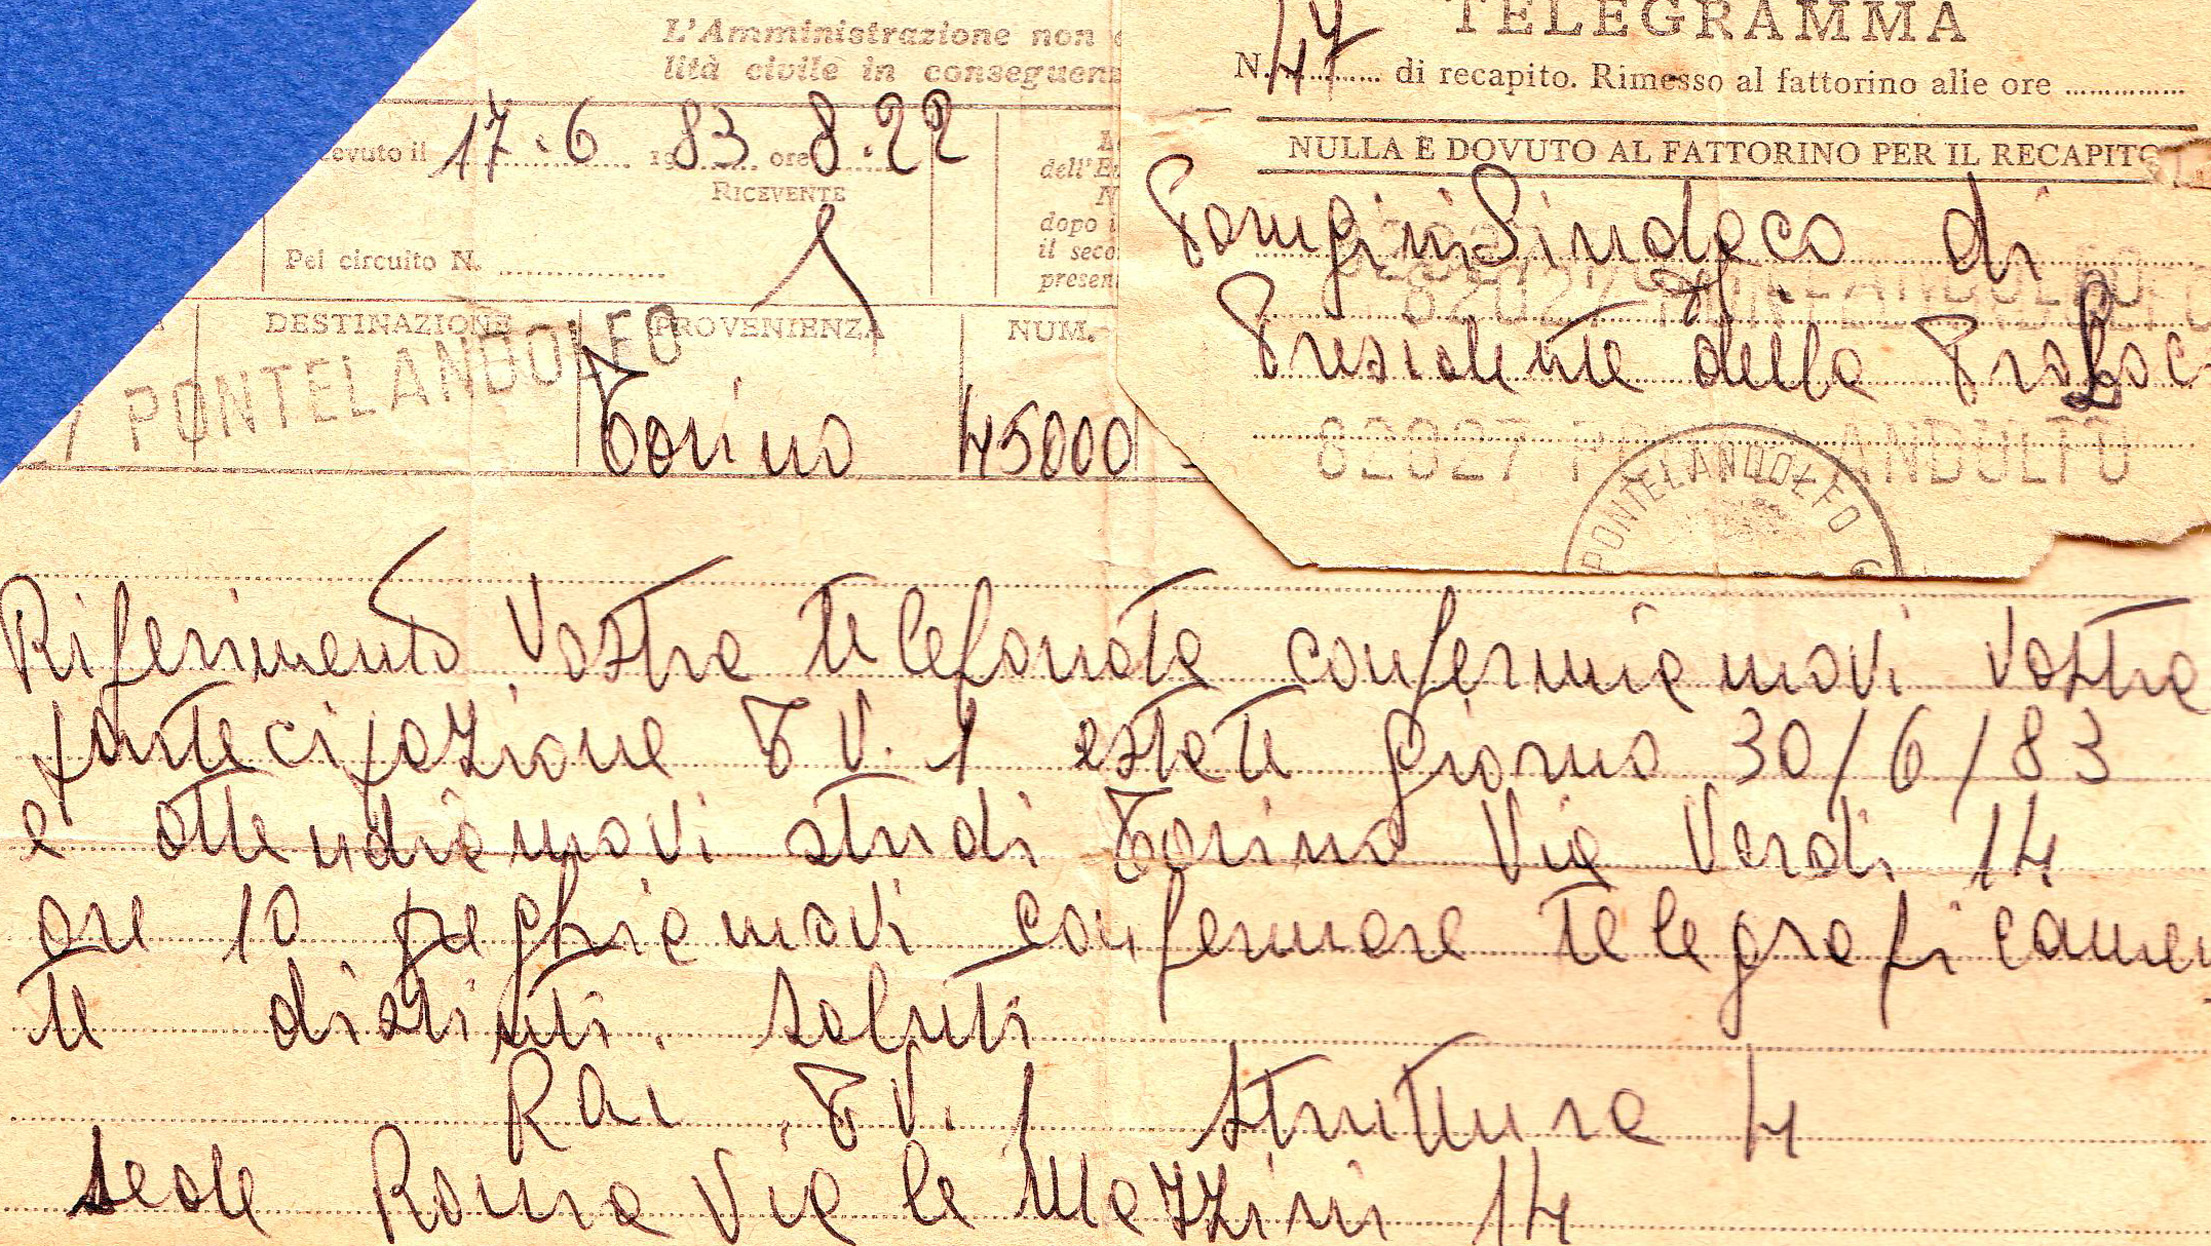 L'Amministrazione non
lità civile in conseguenz
evuto il 17.6 19 83 ore 8.22
RICEVENTE
dell'E
dopo i
il seco
presen
Pel circuito N.
DESTINAZIONE PROVENIENZA NUM.
PONTELANDOLFO
Torino 45000
TELEGRAMMA
N. 47 di recapito. Rimesso al fattorino alle ore
NULLA È DOVUTO AL FATTORINO PER IL RECAPITO
Sindaco di
Presidente della ProLoc
82027 PONTELANDOLFO
PONTELANDOLFO
Riferimento Vostra telefonata confermiamovi Vostra
partecipazione TV. 1 estate giorno 30/6/83
e attendiamovi studi Torino Via Verdi 14
ore 10 preghiamovi confermare telegraficamen
te distinti saluti
Rai TV. 1 struttura 4
sede Roma Viale Mazzini 14